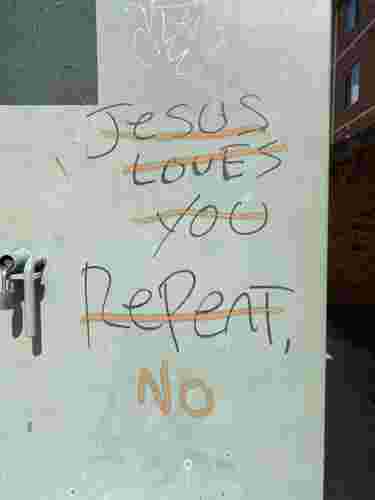 JeSUS
LOVES
YOU
RePeAT,
NO